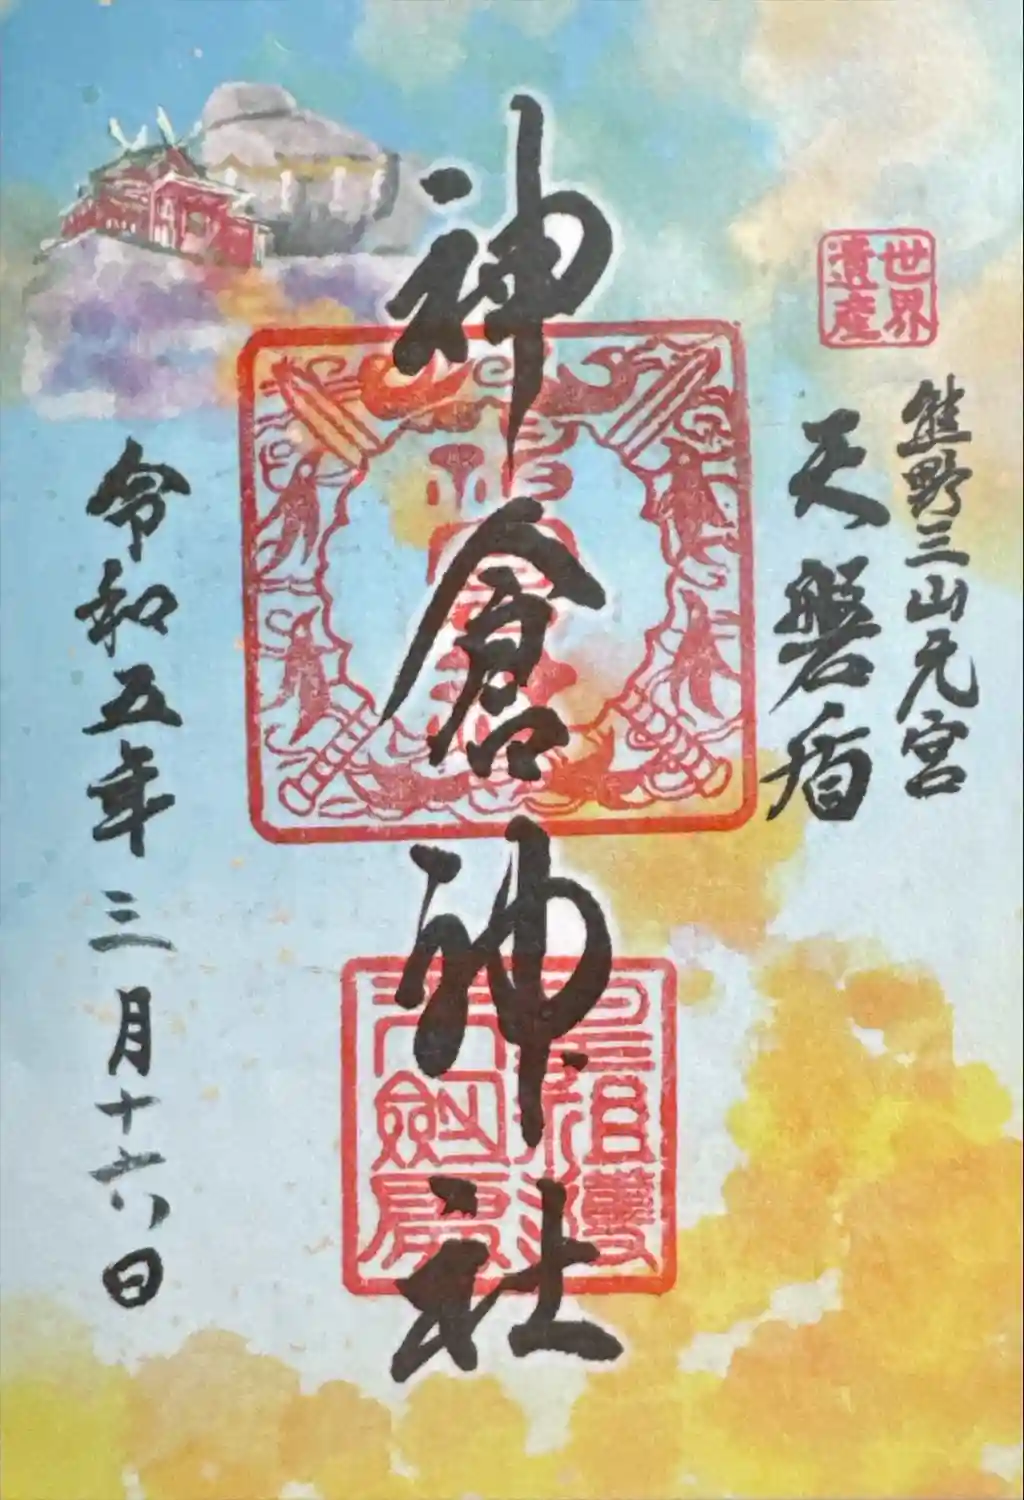 世界
遺産
熊野三山元宮
天磐盾
神倉神社
令和五年三月十六日